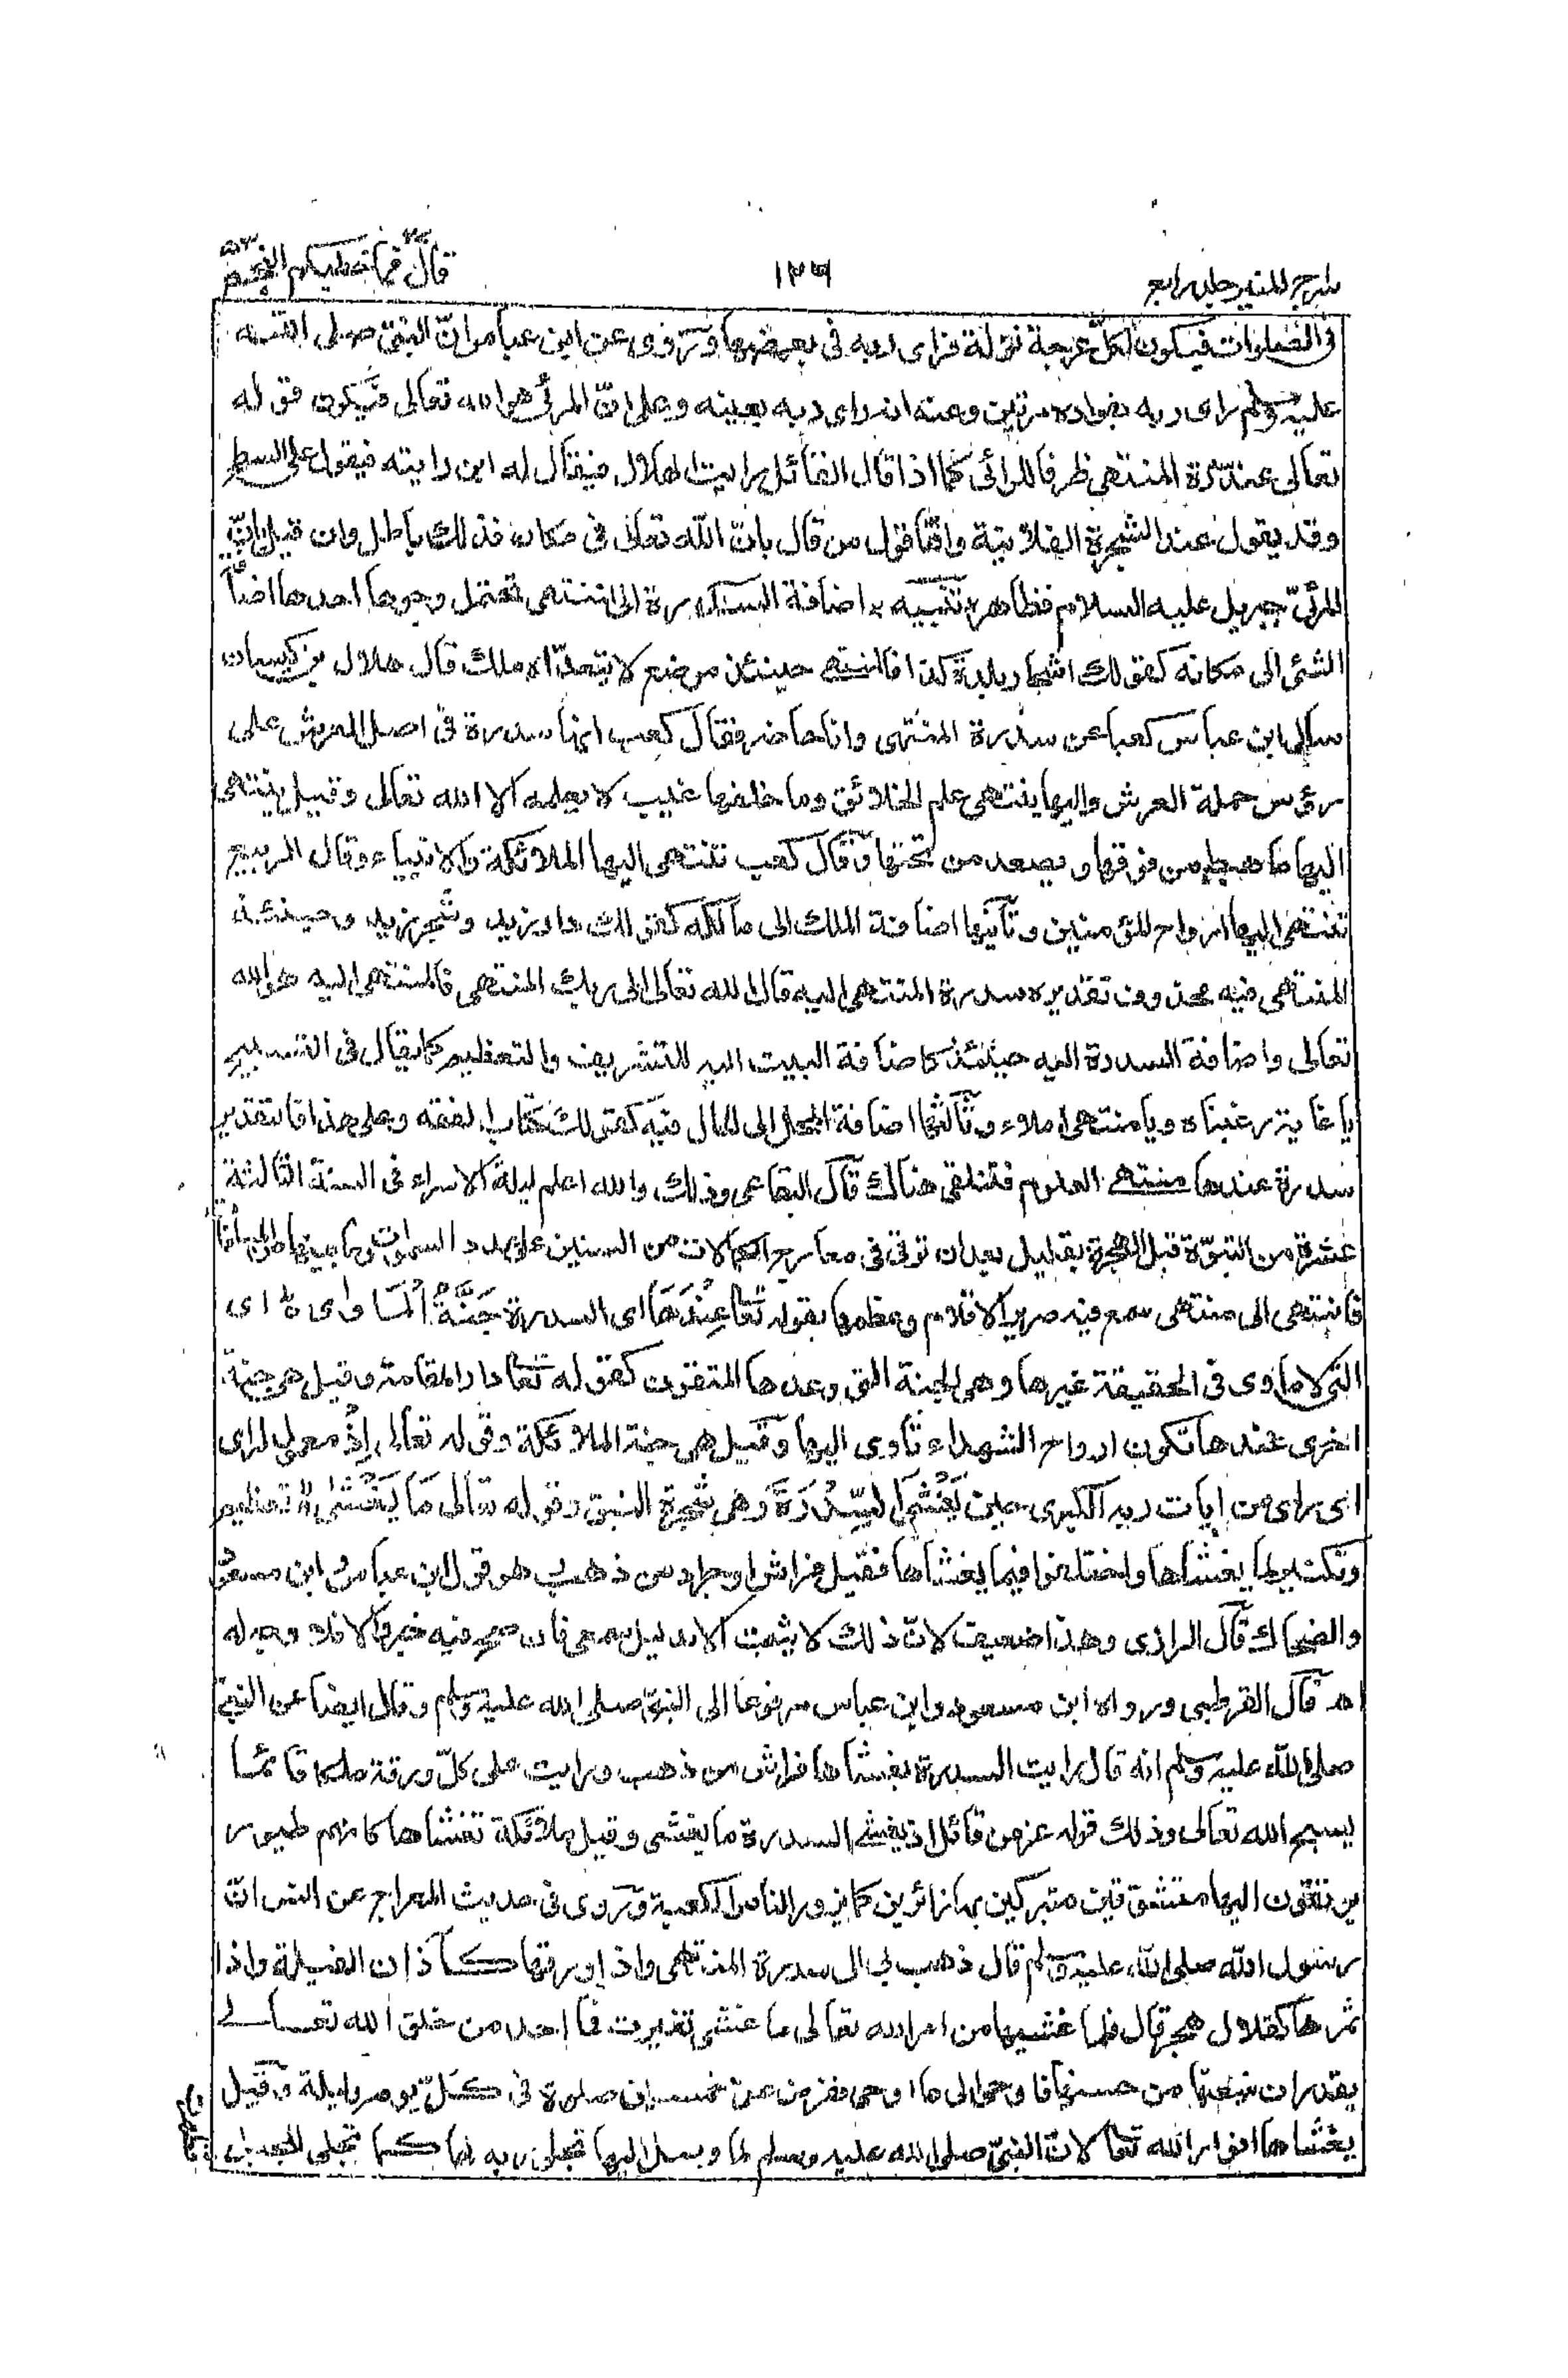 سراج المنير جلد رابع
١٢٦
قال فما خطبكم النجم ٥٣
فى الصلوات فيكون لكل عرجة نزلة فراى ربه فى بعضها وروى عن ابن عباس انّ النبىّ صلى الله
عليه وسلم راى ربه بفواده مرتين وعنه انه راى ربه بعينه وعلى انّ المرئى هو الله تعالى فيكون قوله
تعالى عند سدرة المنتهى ظرفا للرائى كما اذا قال القائل رايت الهلال فيقال له اين رايته فيقول على السطح
وقد يقول عند الشجرة الفلانية وامّا قول من قال بانّ الله تعالى فى مكان فذلك باطل وان قيل بانّ
المرئىّ جبريل عليه السلام فظاهر تنبيه اضافة السدرة الى المنتهى تحتمل وجوها احدها اضافة
الشئ الى مكانه كقولك اشجار بلدة كذا فالمنتهى حينئذ موضع لا يتعدّاه ملك قال هلال بن كيسان
سال ابن عباس كعبا عن سدرة المنتهى وانا حاضر فقال كعب انها سدرة فى اصل العرش على
رؤس حملة العرش واليها ينتهى علم الخلائق وما خلفها غيب لا يعلمه الا الله تعالى وقيل ينتهى
اليها ما هبط من فوقها ويصعد من تحتها وقال كعب تنتهى اليها الملائكة والانبياء وقال الربيع
تنتهى اليها ارواح المؤمنين وثانيها اضافة الملك الى مالكه كقولك دار زيد وشجر زيد وحينئذ
المنتهى فيه محذوف تقديره سدرة المنتهى اليه قال الله تعالى الى ربك المنتهى فالمنتهى اليه هو الله
تعالى واضافة السدرة اليه حينئذ كاضافة البيت اليه للتشريف والتعظيم كما يقال فى التسبيح
يا غاية رغبتاه ويا منتهى املاه وثالثها اضافة المحل الى الحال فيه كقولك كتاب الفقه وعلى هذا فالتقدير
سدرة عندها منتهى العلوم فتتلقى هناك قال البقاعى وذلك والله اعلم ليلة الاسراء فى السنة الثالثة
عشرة من النبوّة قبل الهجرة بقليل بعد ان ترقى فى معارج الكمالات من السنين على عدد السموات وما بينها من المسافات
فانتهى الى منتهى سمع فيه صرير الاقلام وعظمها بقوله تعالى عِنْدَهَا اى السدرة جَنَّةُ الْمَاوٰى ه اى
التى لا ماوى فى الحقيقة غيرها وهى الجنة التى وعدها المتقون كقوله تعالى دار المقامة وقيل هى جنة
اخرى عندها تكون ارواح الشهداء تاوى اليها وقيل هى جنة الملائكة وقوله تعالى اِذْ معمول لراى
اى راى من ايات ربه الكبرى حين يَغْشَى السِّدْرَةَ وهى شجرة النبق وقوله تعالى مَا يَغْشٰى ه تعظيم
وتكثير لما يغشاها واختلفوا فيما يغشاها فقيل فراش او جراد من ذهب وهو قول ابن عباس وابن مسعود
والضحاك قال الرازى وهذا ضعيف لانّ ذلك لا يثبت الا بدليل سمعى فان صح فيه خبر والا فلا وجه له
اه قال القرطبى ورواه ابن مسعود وابن عباس مرفوعا الى النبىّ صلى الله عليه وسلم وقال ايضا عن النبىّ
صلى الله عليه وسلم انه قال رايت السدرة يغشاها فراش من ذهب ورايت على كلّ ورقة ملكا قائما
يسبح الله تعالى وذلك قوله عز من قائل اذ يغشى السدرة ما يغشى وقيل ملائكة تغشاها كانهم طيور
يرتقون اليها متشوقين متبركين بها زائرين كما يزور الناس الكعبة وروى فى حديث المعراج عن انس انّ
رسول الله صلى الله عليه وسلم قال ذهب بى الى سدرة المنتهى واذا ورقها كآذان الفيلة واذا
ثمرها كقلال هجر قال فلما غشيها من امر الله تعالى ما غشى تغيرت فما احد من خلق الله تعالى
يقدر ان ينعتها من حسنها فاوحى الى ما اوحى ففرض علىّ خمسين صلوة فى كلّ يوم وليلة وقيل
يغشاها انوار الله تعالى لانّ النبىّ صلى الله عليه وسلم لما وصل اليها تجلى ربه لها كما تجلى للجبل